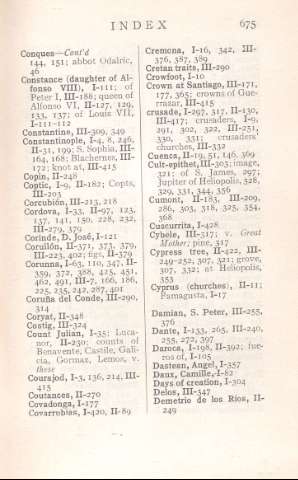 INDEX 675
Conques—Cont'd
144, 151; abbot Odalric,
46
Constance (daughter of Al-
fonso VIII), I-111; of
Peter I, III-186; queen of
Alfonso VI, II-127, 129,
133, 137; of Louis VII,
I-111-112
Constantine, III-309, 349
Constantinople, I-4, 8, 246,
II-31, 199; S. Sophia, III-
164, 168; Blachernes, III-
172; knot at, III-415
Copin, II-248
Coptic, I-9, II-182; Copts,
III-203
Corcubión, III-213, 218
Cordova, I-33, II-97, 123,
137, 141, 150, 228, 232,
III-279, 379
Corinde, D. José, I-121
Corullón, II-371, 373, 379,
III-223, 402; figs, II-379
Corunna, I-63, 110, 347, II-
359, 372, 388, 425, 451,
462, 491, III-7, 166, 186,
225, 235, 242, 287, 401
Coruña del Conde, III-290,
314
Coryat, II-348
Costig, III-324
Count Julian, I-35; Luca-
nor, II-230; counts of
Benavente, Castile, Gali-
cia, Gormaz, Lemos, v.
these
Courajod, I-3, 136, 214, III-
415
Coutances, II-270
Covadonga, I-177
Covarrubias, I-420, II-89
Cremona, I-16, 342, III-
376, 387, 389
Cretan traits, III-290
Crowfoot, I-10
Crown at Santiago, III-171,
177, 365; crowns of Gue-
rrazar, III-415
crusade, I-297, 317, II-130,
III-417; crusaders, I-9,
291, 302, 322, III-251,
330, 331; crusaders'
churches, III-332
Cuenca, II-19, 51, 146, 369
Cult-epithet, III-303; image,
321; of S. James, 297;
Jupiter of Heliopolis, 328,
329, 331, 344, 356
Cumont, II-183, III-209,
286, 303, 318, 325, 354,
368
Cuscurrita, I-428
Cybele, III-317; v. Great
Mother; pine, 317
Cypress tree, II-422, III-
249-252, 307, 321; grove,
307, 332; at Heliopolis,
353
Cyprus (churches), II-11;
Famagusta, I-17
Damian, S. Peter, III-255,
376
Dante, I-133, 265, III-240,
255, 272, 397
Daroca, I-198, II-392; fue-
ros of, I-105
Dastean, Angel, I-357
Daux, Camille, I-82
Days of creation, I-304
Delos, III-347
Demetrio de los Rios, II-
249